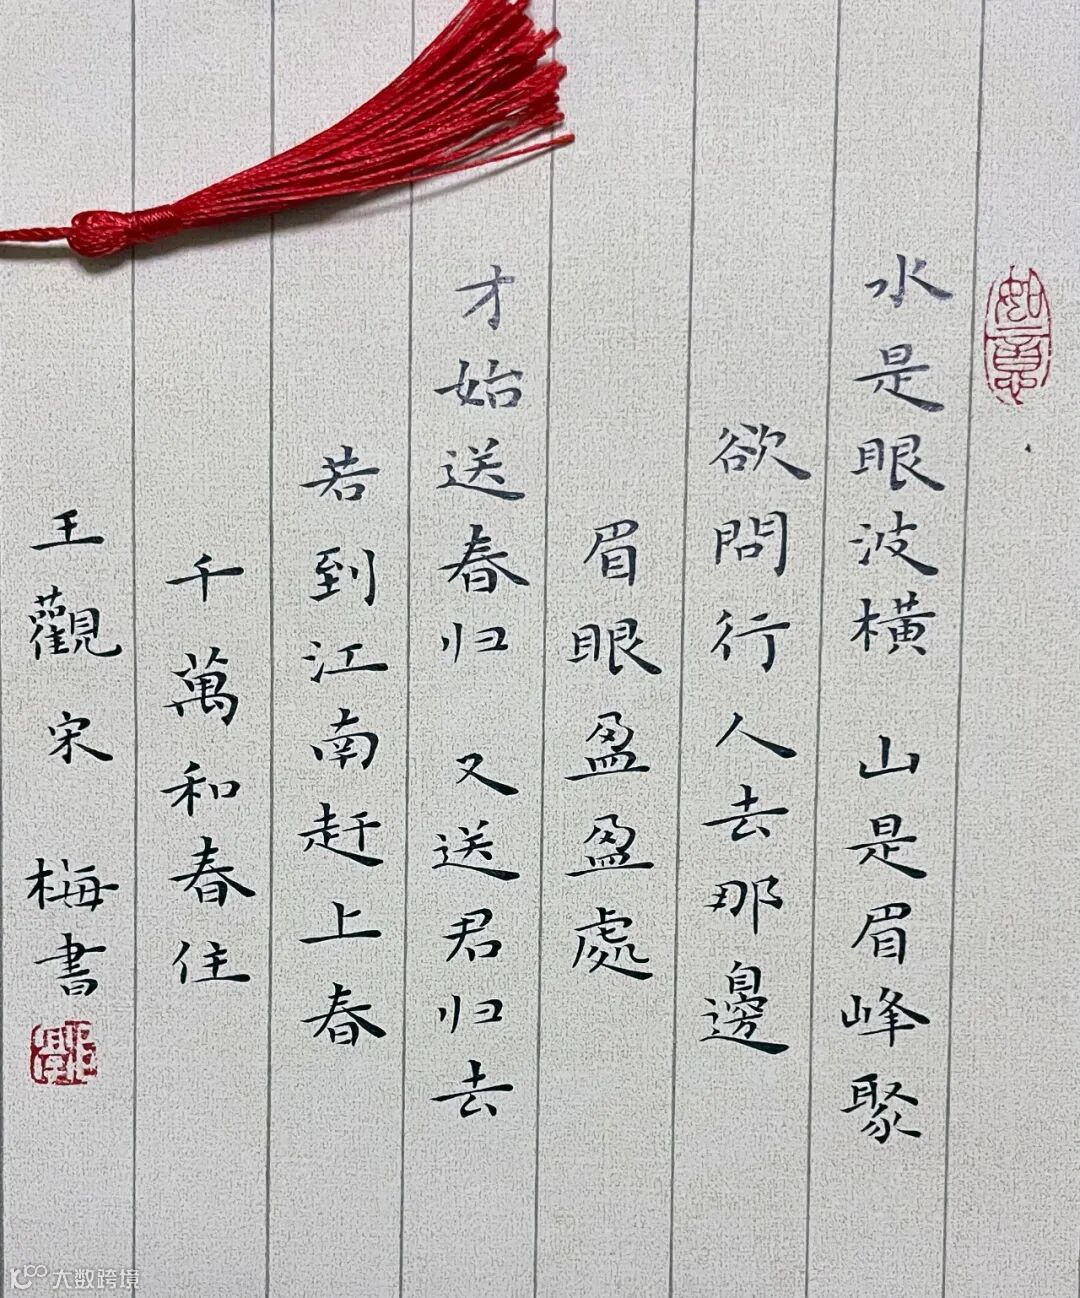 如意
水是眼波橫 山是眉峰聚
欲問行人去那邊
眉眼盈盈處
才始送春归 又送君归去
若到江南赶上春
千萬和春住
王觀宋 梅書
大数跨境